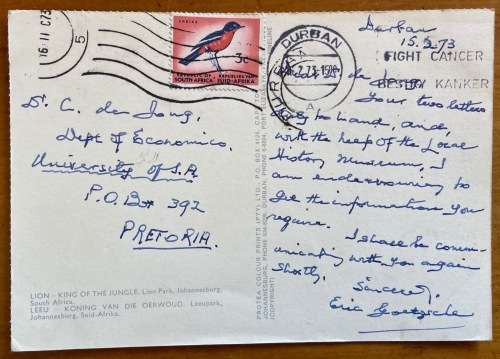 16 II 073
5
SHRIKE
3c
REPUBLIC OF SOUTH AFRICA
REPUBLIEK VAN SUID-AFRIKA
DURBAN
A
FIGHT CANCER
KANKER
Dr. C. de Jong,
Dept of Economics,
University of S.A.
P.O. Box 392
PRETORIA.
LION - KING OF THE JUNGLE. Lion Park, Johannesburg,
South Africa.
LEEU - KONING VAN DIE OERWOUD. Leeupark,
Johannesburg, Suid-Afrika.
PROTEA COLOUR PRINTS (PTY) LTD.
JOHANNESBURG,
(COPYRIGHT)
Durban
15.2.73
Your two letters
to hand, and,
with the help of the Local
History Museum, I
am endeavouring to
get the information you
require.
I shall be commu-
nicating with you again
shortly.
Sincerely,
Eric